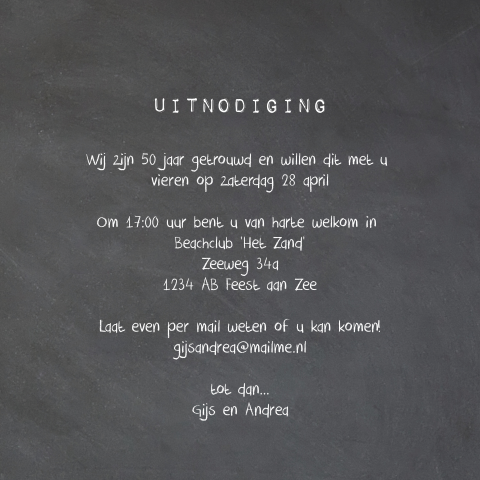 UITNODIGING
Wij zijn 50 jaar getrouwd en willen dit met u
vieren op zaterdag 28 april
Om 17:00 uur bent u van harte welkom in
Beachclub 'Het Zand'
Zeeweg 34a
1234 AB Feest aan Zee
Laat even per mail weten of u kan komen!
gijsandrea@mailme.nl
tot dan...
Gijs en Andrea